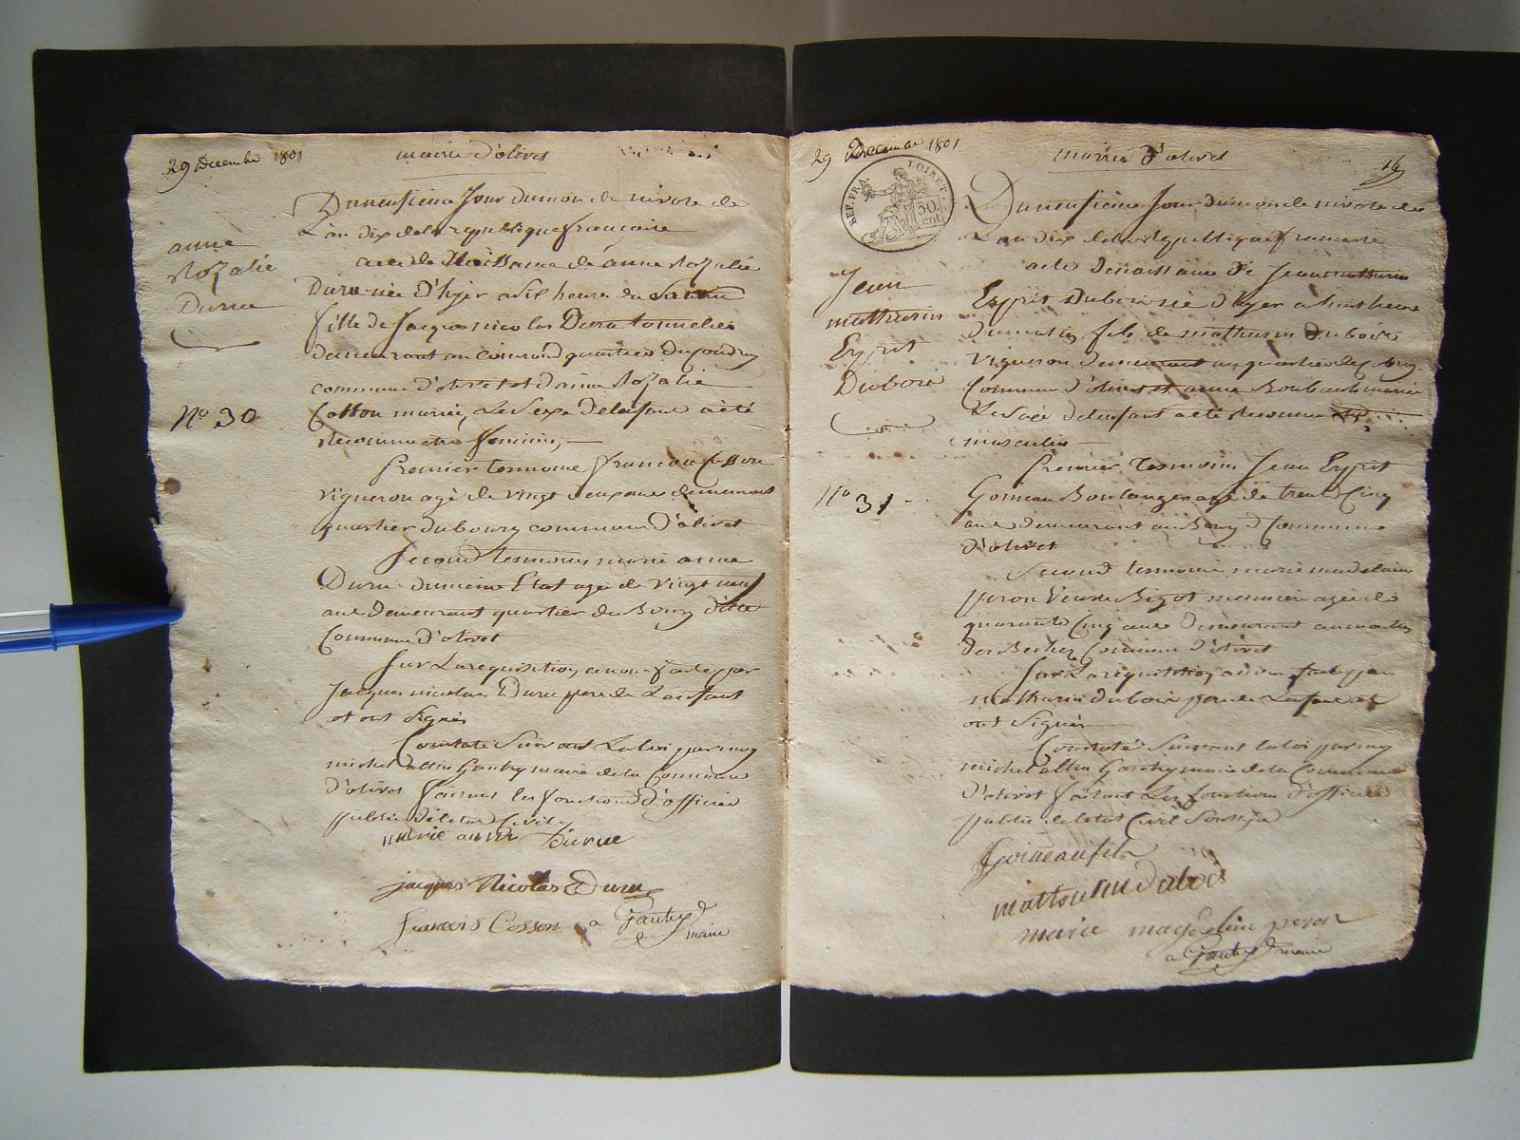 29 Decembre 1801
mairie d'olivet
Du neufieme Jour du mois de nivose de
L'an dix de la republique francaise
acte de Naissance de anne Rozalie
Durue née d'hyer a six heures du
fille de Jacques nicolas Durue tonnelier
demeurant au quartier du poudry
commune d'olivet et d'anne Rozalie
Cosson mariés, Le Sexe de lenfant a été
Reconnu etre feminin,
anne
Rozalie
Durue
No 30
Premier temoins francois Cosson
vigneron agé de vingt deux ans demeurant
quartier du bourg commune d'olivet
Second temoins marie anne
Durue du meme Etat agé de vingt neuf
ans Demeurant quartier du Bourg dicte
Commune d'olivet
Sur La requisition a nous faite par
Jacques nicolas Durue pere de L'enfant
et ont Signés
Constaté Suivant La loi par moy
michel allin Gauthy maire de la Commune
d'olivet faisant les fonctions d'officier
public de letat Civil
marie anne Durue
jacques Nicolas Durue
francois Cosson a Gauthy
maire
29 Decembre 1801
mairie d'olivet
16
REP. FRA. LOIRET.
50
CENT.
Du neufieme Jour du mois de nivose de
L'an dix de la Republique francaise
acte de naissance de Jean mathurin
Esprit Dubois né d'hyer a huit heures
du matin fils de mathurin Dubois
Vigneron demeurant au quartier de
Commune d'olivet et anne mariés
Le Sexe de lenfant a été Reconnu
masculin
Jean
mathurin
Esprit
Dubois
No 31
Premier temoins Jean Esprit
Goineau Boulanger agé de trente Cinq
ans demeurant au Bourg Commune
d'olivet
Second temoins marie madelaine
peron Veuve Bigot agée de
quarante Cinq ans demeurant au
des Commune d'olivet
Sur La requisition a nous faite par
Mathurin dubois pere de Lenfant et
ont Signés
Constaté Suivant la loi par moy
michel allin Gauthy maire de la Commune
d'olivet faisant les fonctions d'officier
public de letat Civil Soussigné
Goineau fils
mathurin Dubois
marie magdelene peron
a Gauthy maire